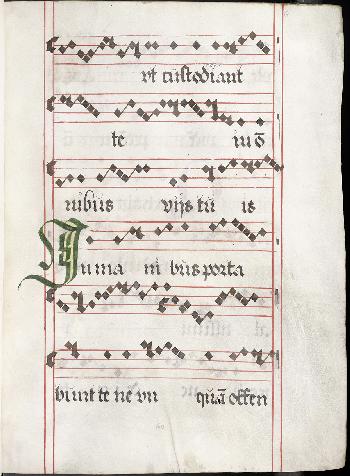 vt custodiant
te in o
nibus vijs tu is
In ma ni bus porta
bunt te ne vn quā offen